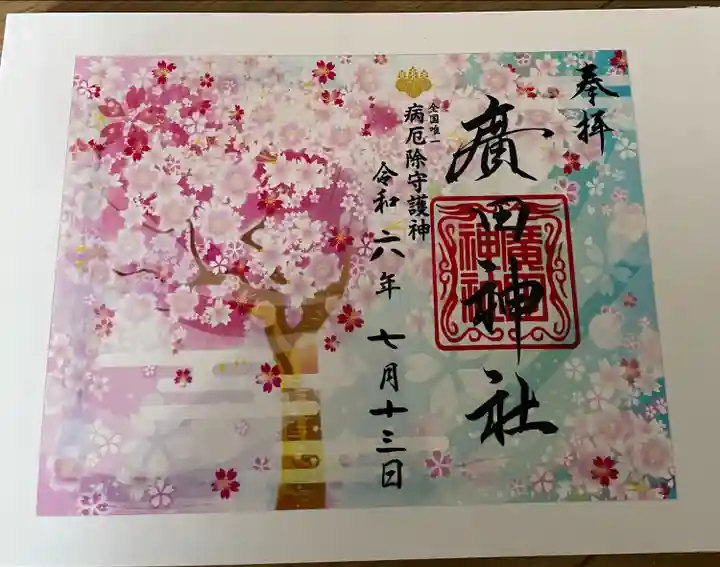 奉拝
廣田神社
廣田神社
全国唯一
病厄除守護神
令和六年七月十三日